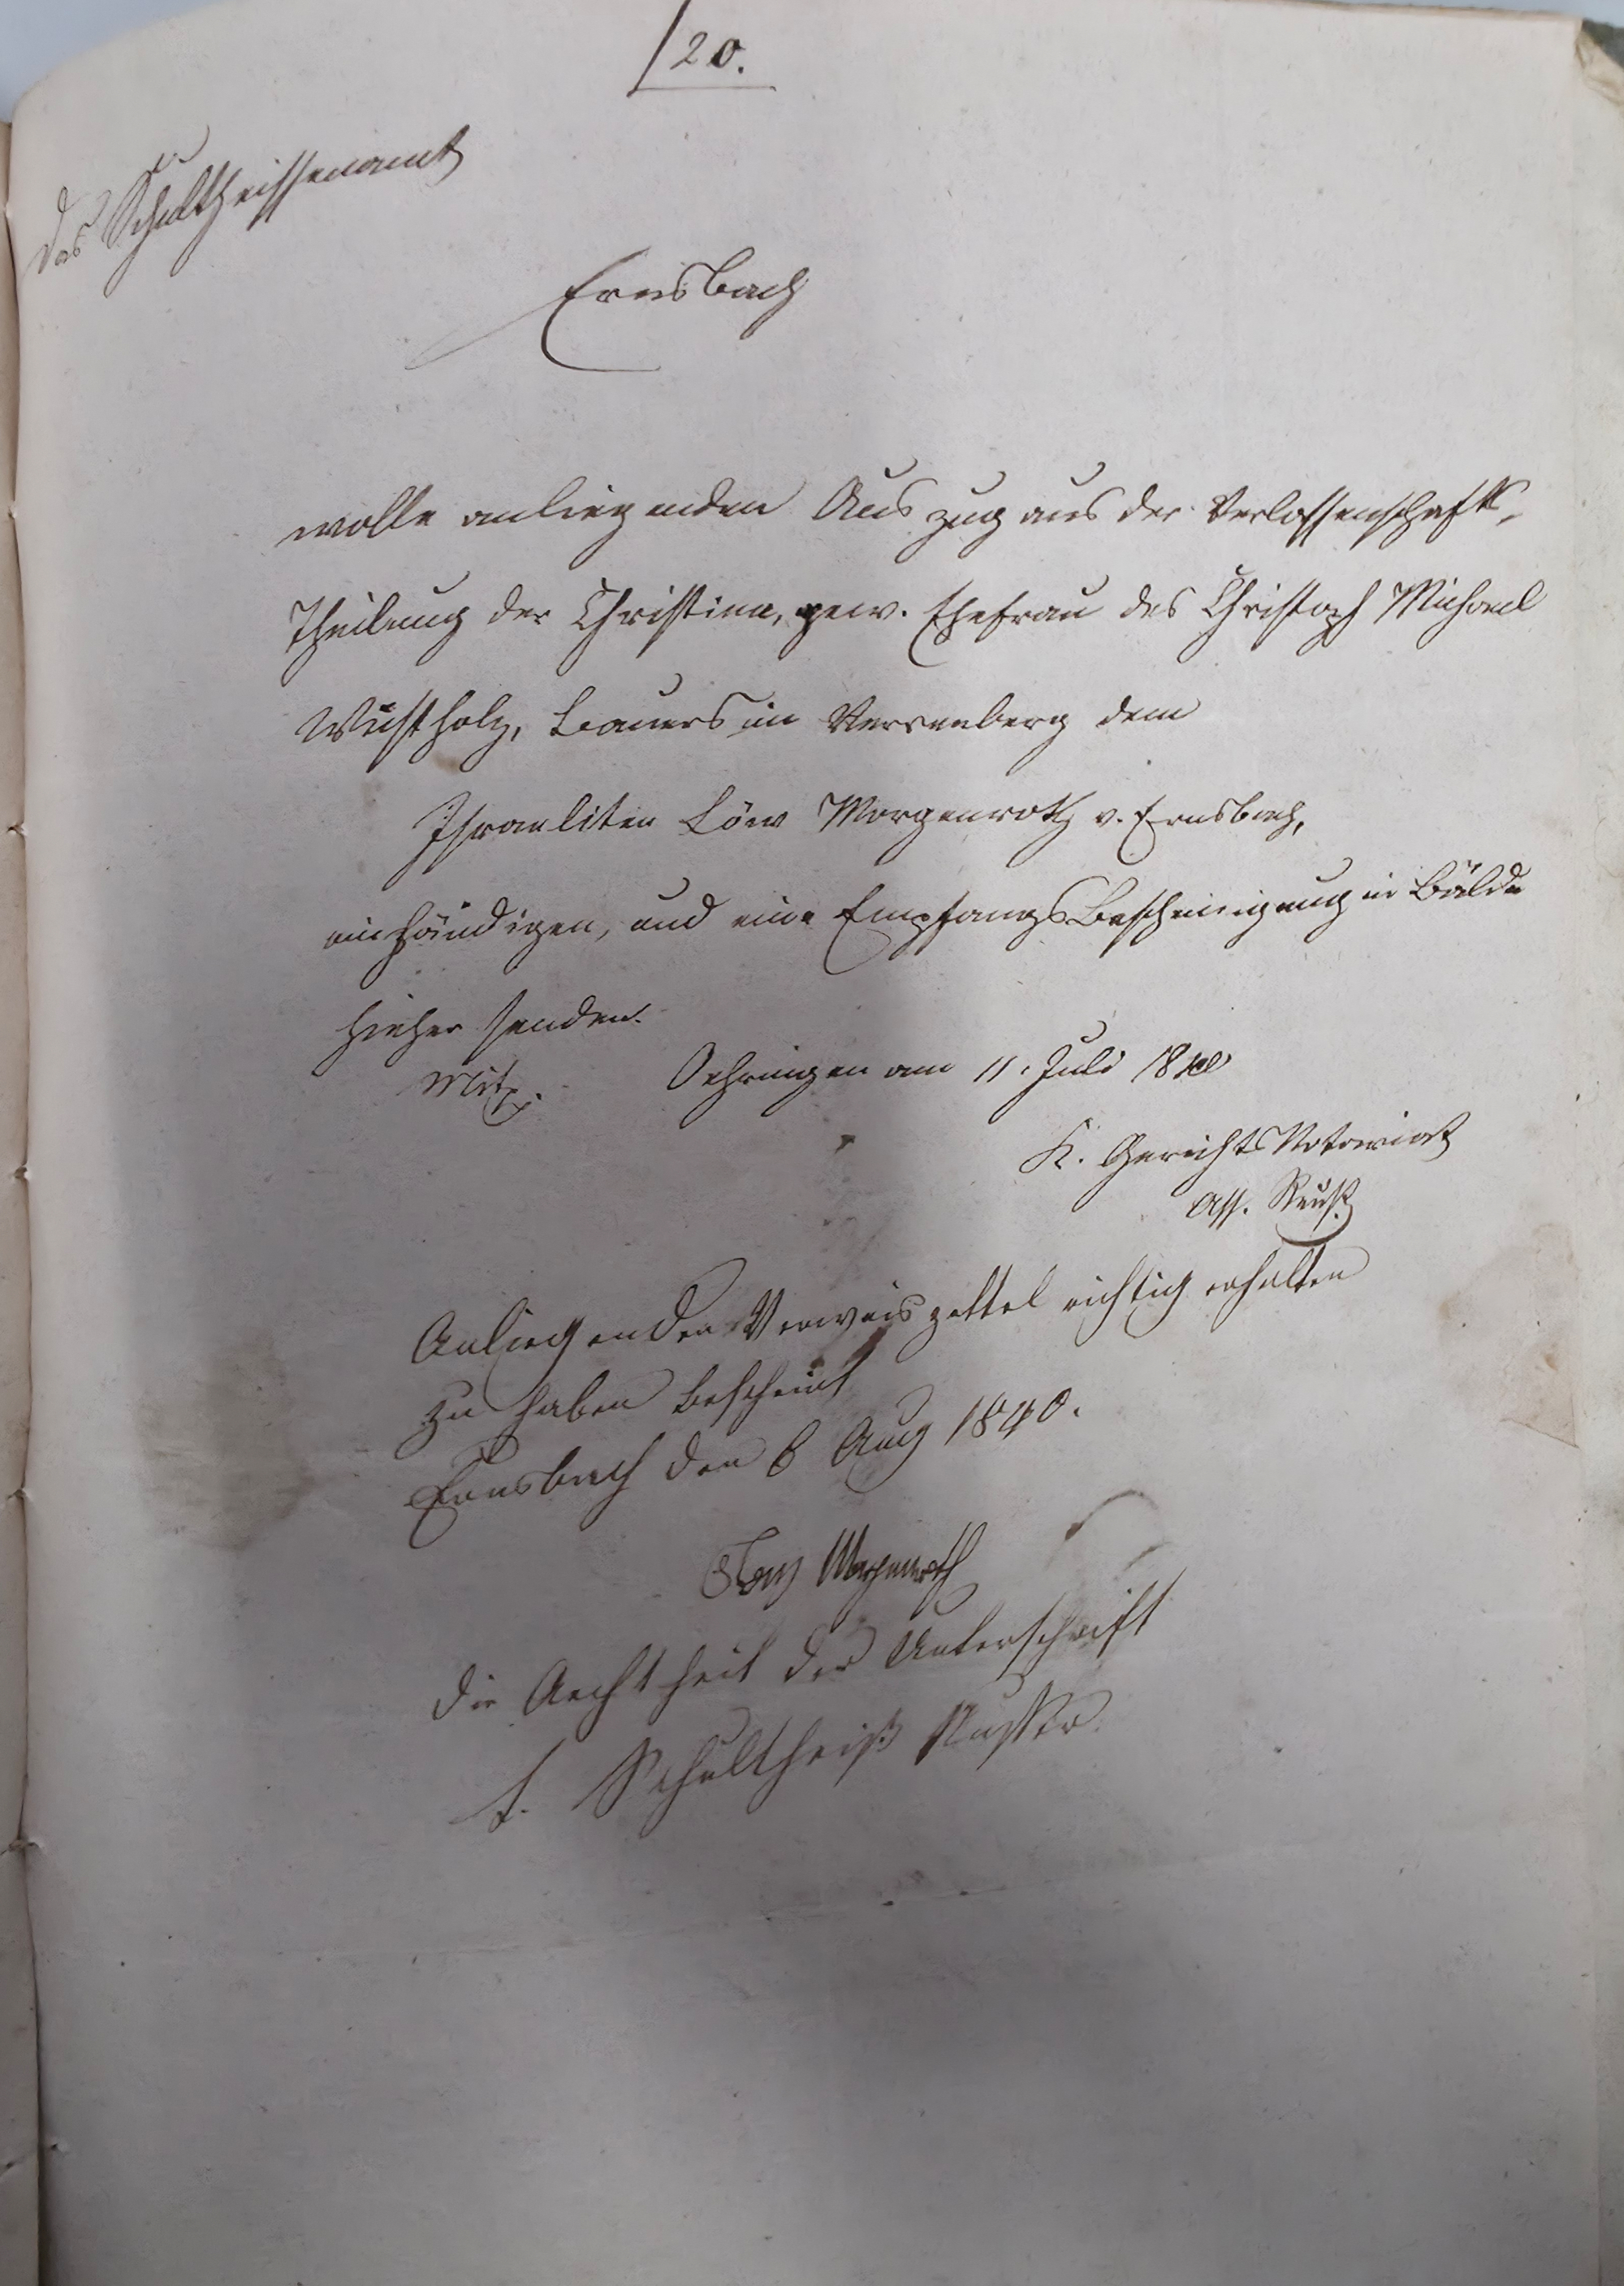 20.
Das Schultheissenamt
Ernsbach
wolle anliegenden Auszug aus der Verlassenschafts-
Theilung der Christina, gew. Ehefrau des Christoph Michael
Wüstholz, Bauers in Verrenberg dem
Israeliten Löw Morgenroth v. Ernsbach,
einhändigen, und eine Empfangs Bescheinigung in Bälde
hieher senden.
Oehringen am 11. Juli 1840
K. Gerichts Notariat
Ass. Reuß
Anliegenden Verweiszettel richtig erhalten
zu haben bescheint
Ernsbach den 6 Aug 1840.
Löw Morgenroth
Die Aechtheit der Unterschrift
t. Schultheiß